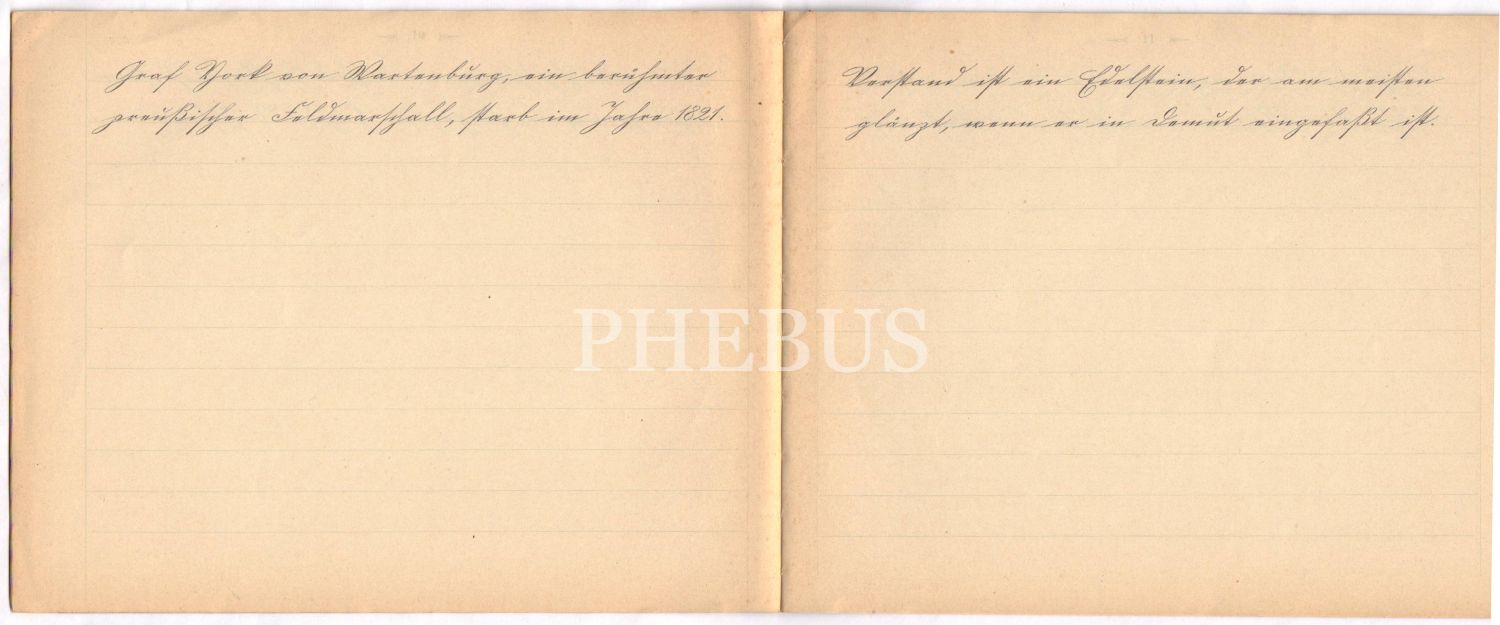 Graf York von Wartenburg, ein berühmter
preußischer Feldmarschall, starb im Jahre 1821.
Verstand ist ein Edelstein, der am meisten
glänzt, wenn er in Demut eingefaßt ist.
PHEBUS